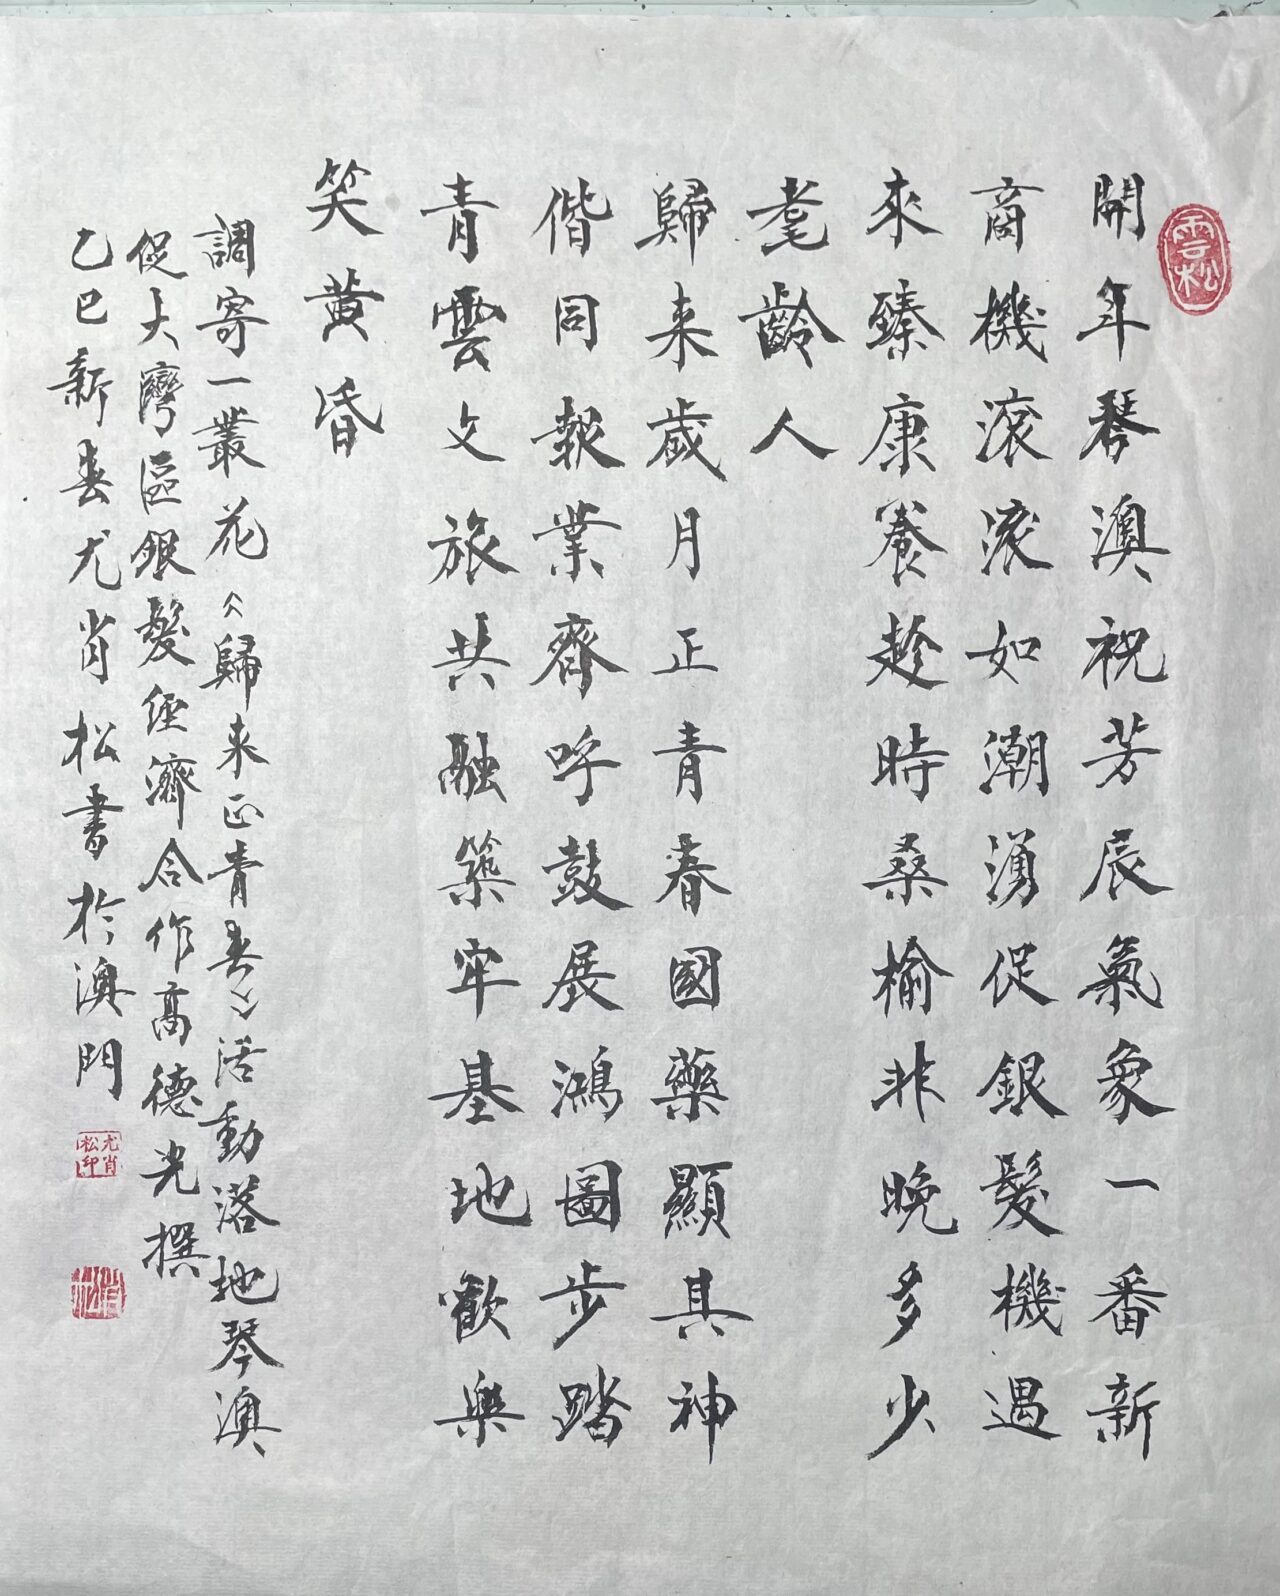 雲松
開年琴澳祝芳辰氣象一番新
商機滾滾如潮湧促銀髮機遇
來臻康養趁時桑榆非晚多少
耄齡人
歸来歲月正青春國藥顯其神
偕同報業齊呼鼓展鴻圖步踏
青雲文旅共融築牢基地歡樂
笑黄昏
調寄一叢花《歸来正青春》活動落地琴澳
促大灣區銀髮經濟合作高德光撰
乙巳新春尤肖松書於澳門
尤肖松印